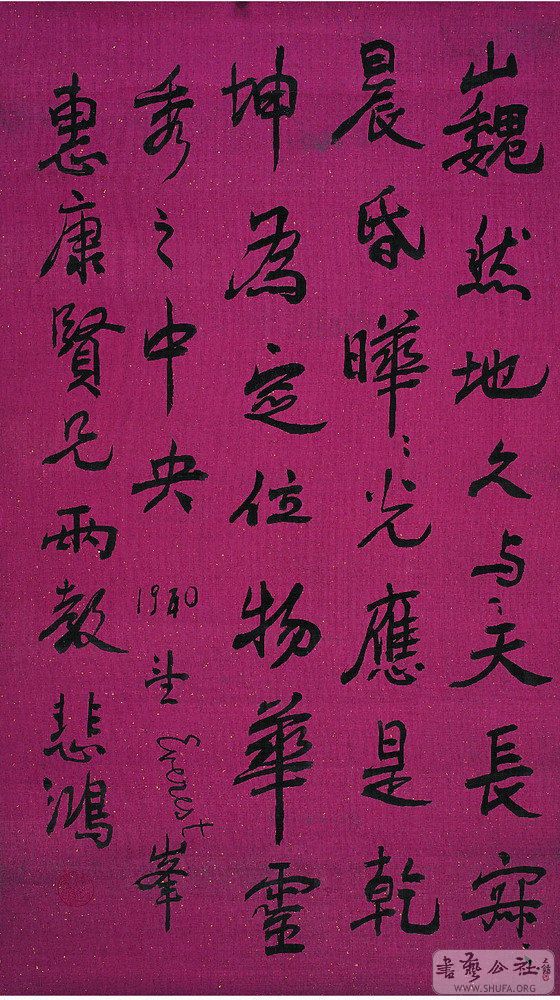 巍然地久与天長寐〻
晨昏曄〻光應是乾
坤為定位物華靈
秀之中央 1940 望 Everest 峯
惠康賢兄兩教 悲鴻
書藝公社
WWW.SHUFA.ORG